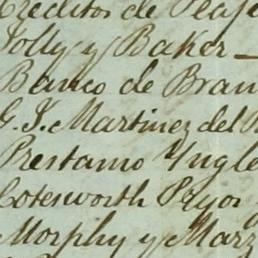 Creditos de Plaje
Jolly y Baker —
Banco de Bran
G. I. Martinez del R
Prestamo Yngle
Cotesworth Pryor y
Morphy y Marz